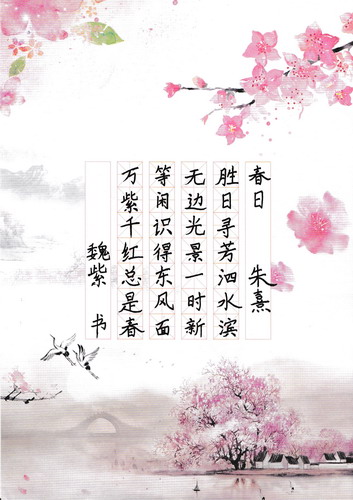 春日 朱熹
胜日寻芳泗水滨
无边光景一时新
等闲识得东风面
万紫千红总是春
魏紫 书